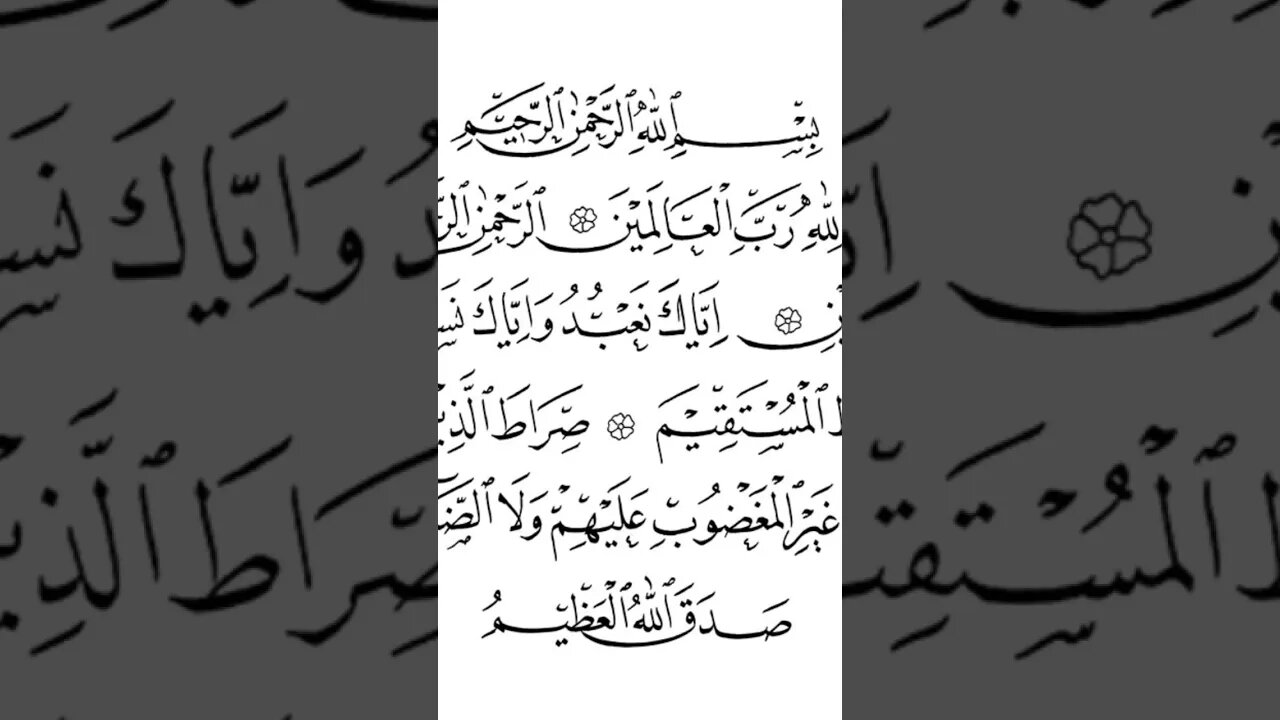 بِسْمِ ٱللّٰهِ ٱلرَّحْمٰنِ ٱلرَّحِيْمِ
لِلّٰهِ رَبِّ ٱلْعَالَمِيْنَ ۞ ٱلرَّحْمٰنِ
اِيَّاكَ نَعْبُدُ وَاِيَّاكَ
ٱلْمُسْتَقِيْمَ ۞ صِرَاطَ
غَيْرِ ٱلْمَغْضُوْبِ عَلَيْهِمْ وَلَا
صَدَقَ ٱللّٰهُ ٱلْعَظِيْمُ